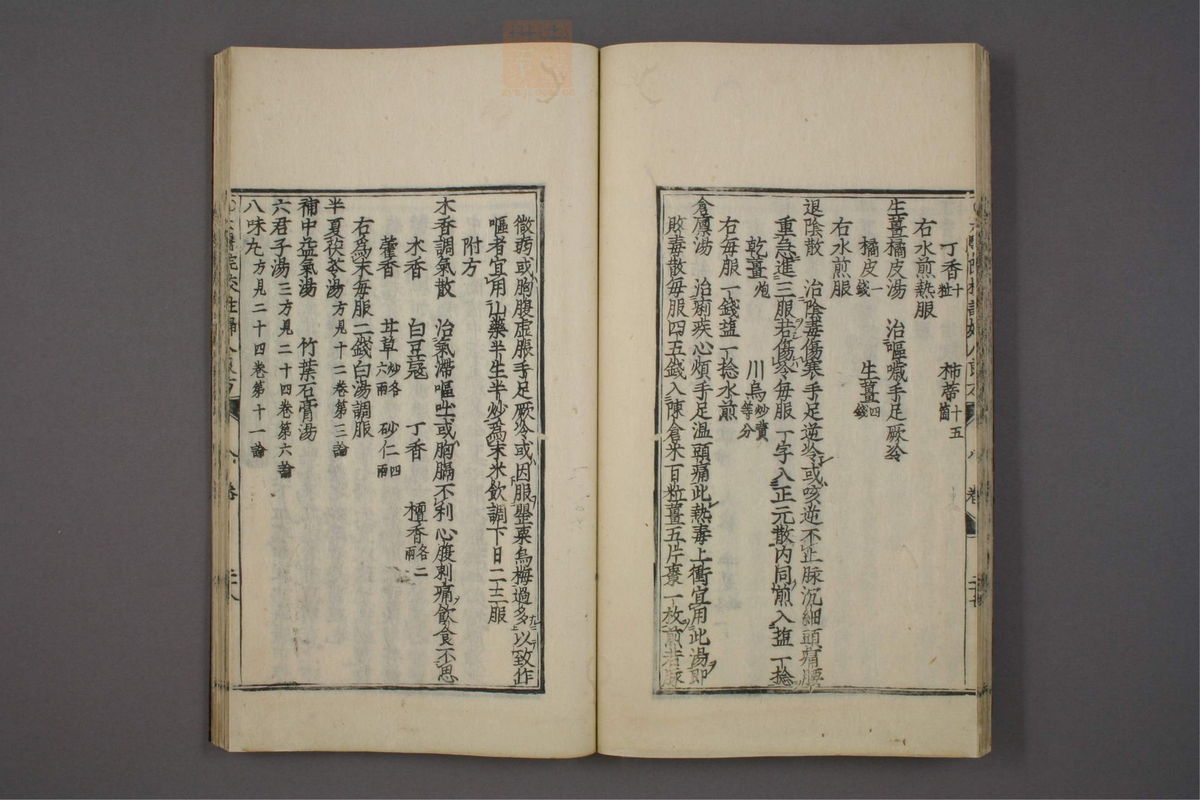 丁香十粒 柿蒂十五箇
右水煎熱服
生薑橘皮湯 治嘔噦手足厥冷
橘皮一錢 生薑四錢
右水煎服
退陰散 治陰毒傷寒手足逆冷或咳逆不止脉沉細頭痛腰
重急進三服若傷冷每服一字入正元散内同煎入塩一捻
乾薑炮 川烏炒賣等分
右每服一錢塩一捻水煎
倉廩湯 治痢疾心煩手足温頭痛此熱毒上衝宜用此湯即
敗毒散每服四五錢入陳倉米百粒薑五片棗一枚煎若脉
卷
二十七
微弱或胸腹虚脹手足厥冷或因服罌粟烏梅過多以致作
嘔者宜用山藥半生半炒為末米飲調下日二三服
附方
木香調氣散 治氣滯嘔吐或胸膈不利心腹刺痛飲食不思
木香 白豆蔻 丁香 檀香各二兩
藿香 甘草炒各六兩 砂仁四兩
右為末每服二錢白湯調服
半夏茯苓湯方見十二卷第三論
補中益氣湯 竹葉石膏湯
六君子湯三方見二十四卷第六論
八味丸方見二十四卷第十一論
太醫院校註婦人良方 卷
二十八